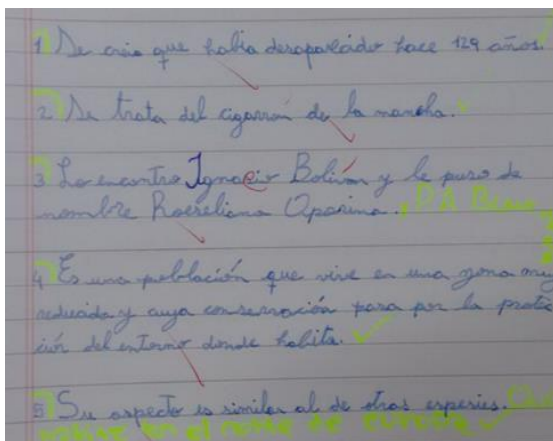 1 Se creia que habia desaparecido hace 129 años.
2 Se trata del cigarrón de la mancha.
3 Lo encontro Ignacio Bolivar y le puso de
nombre Roeseliana Oporina.
4 Es una población que vive en una zona muy
reducida y cuya conservación pasa por la protec
ción del entorno donde habita.
5 Su aspecto es similar al de otras especies.
en el norte de europa